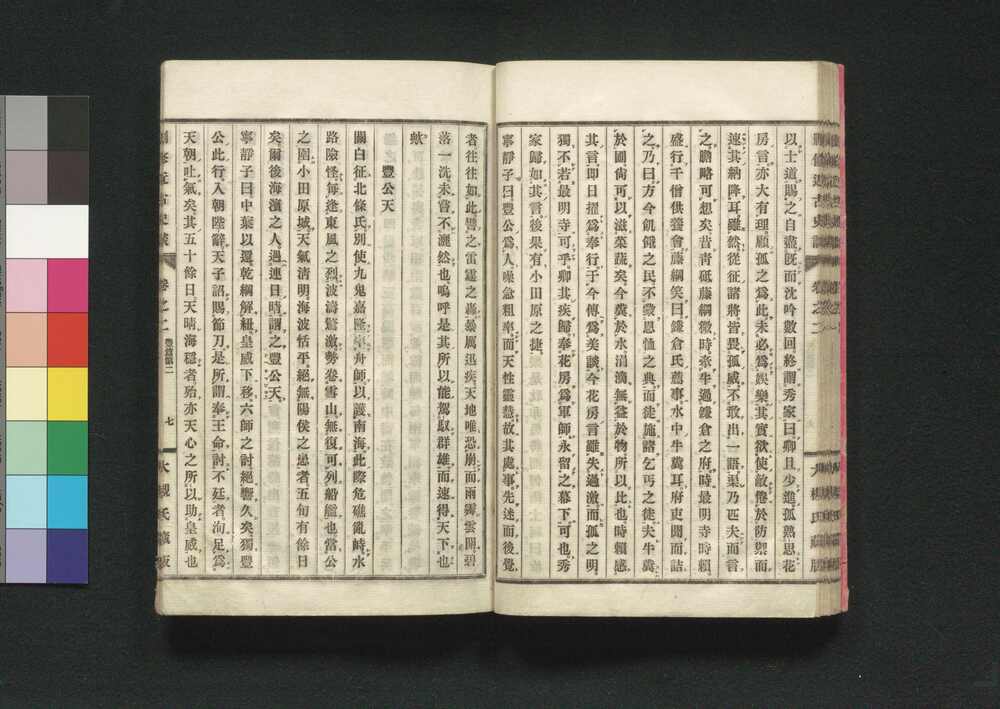 以士道賜之自盡既而沈吟數回終謂秀家曰卿且少進孤熟思花
房言亦大有理顧孤之爲此未必爲娛樂其實欲使敵倦於防禦而
速其納降耳雖然從征諸將皆畏孤威不敢出一語渠乃匹夫而言
之膽略可想矣昔青砥藤綱微時牽牛過鎌倉之府時最明寺時賴
盛行千僧供養會藤綱笑曰鎌倉氏薦事水中牛糞耳府吏聞而詰
之乃曰方今飢餓之民不蒙恩恤之典而徒施諸乞丐之徒夫牛糞
於圃尚可以滋菜蔬矣今糞於水涓滴無益於物所以比也時賴感
其言即日擢爲奉行于今傳爲美談今花房言雖失過激而孤之明
獨不若最明寺可乎卿其疾歸奉花房爲軍師永留之幕下可也秀
家歸如其言後果有小田原之捷
寧靜子曰豐公爲人噪急粗率而天性靈慧故其處事先迷而後覺
者往往如此譬之雷霆之轟暴厲迅疾天地唯恐崩而雨霽雲開碧
落一洗未嘗不灑然也嗚呼是其所以能駕馭群雄而速得天下也
歟
豐公天
關白征北條氏別使九鬼嘉隆率舟師以護南海此際危礁巃峙水
路險怪每逢東風之烈波濤驚激勢卷雪山無復可列船艦也當公
之圍小田原城天氣清明海波恬平絕無陽侯之患者五旬有餘日
矣爾後海濱之人過連日晴謂之豐公天
寧靜子曰中葉以還乾綱解紐皇威下移六師之討絕響久矣獨豐
公此行入朝陛辭天子詔賜節刀是所謂奉王命討不廷者洵足爲
天朝吐氣矣其五十餘日天晴海穩者殆亦天心之所以助皇威也
卷之二 豐篇第二 七 大槻氏藏版